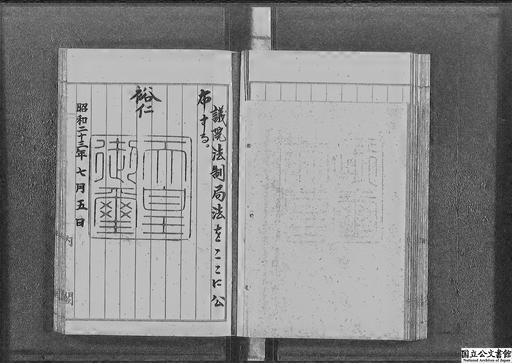 議院法制局法をここに公
布する。
裕仁
天皇
御璽
昭和二十三年七月五日
内閣
国立公文書館
National Archives of Japan